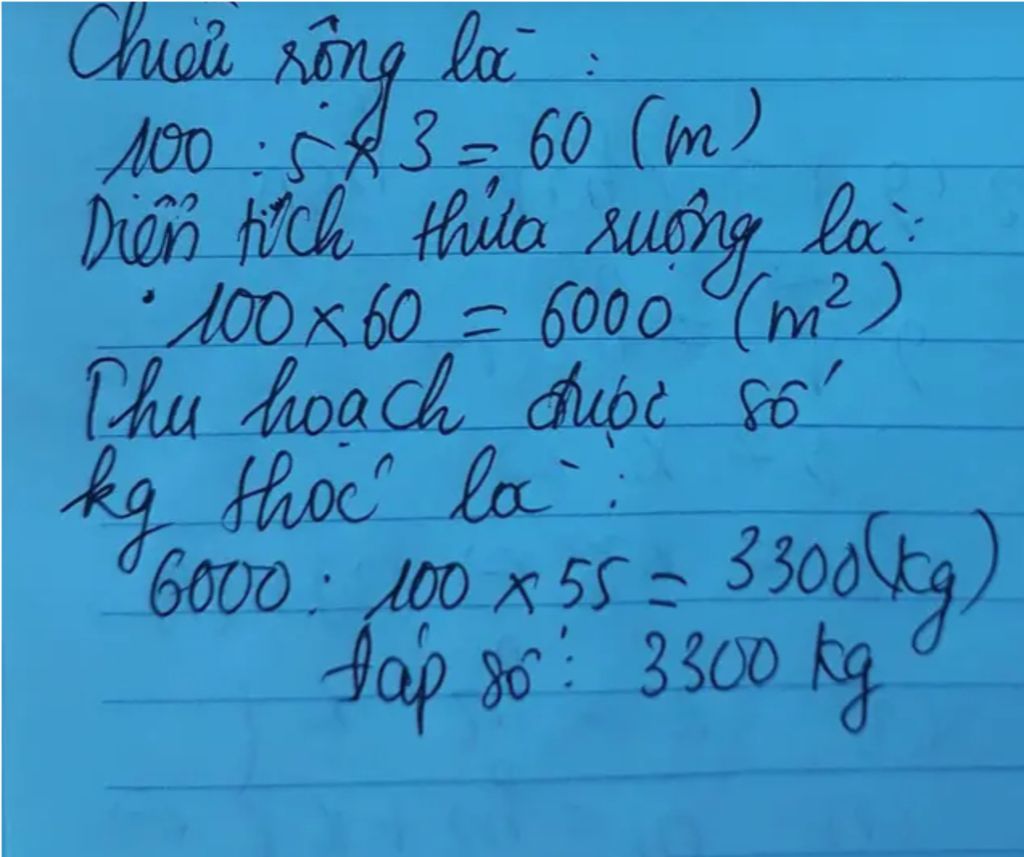 Chiều rộng là :
100 : 5 x 3 = 60 (m)
Diện tích thửa ruộng là :
100 x 60 = 6000 (m²)
Thu hoạch được số
kg thóc là :
6000 : 100 x 55 = 3300 (kg)
Đáp số : 3300 kg